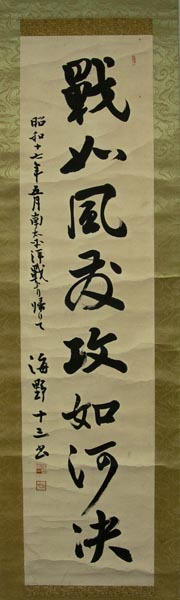 戰如風發攻如河決
昭和十七年五月南太平洋戰より帰りて
海野十三書